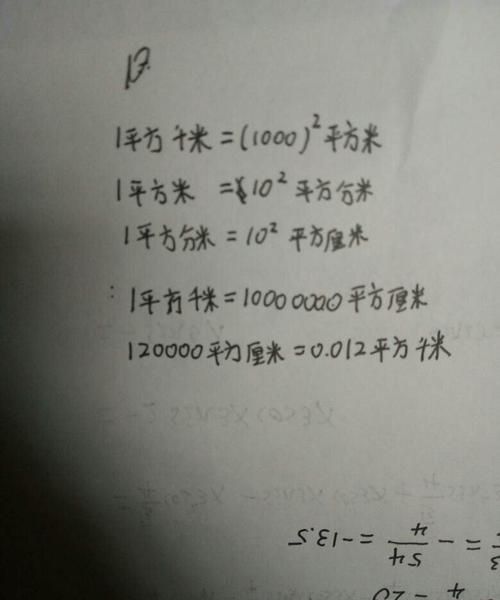 1平方千米=(1000)²平方米
1平方米 =10²平方分米
1平方分米=10²平方厘米
∶1平方千米=10000000平方厘米
120000平方厘米=0.012平方千米
=-54/4=-13.5